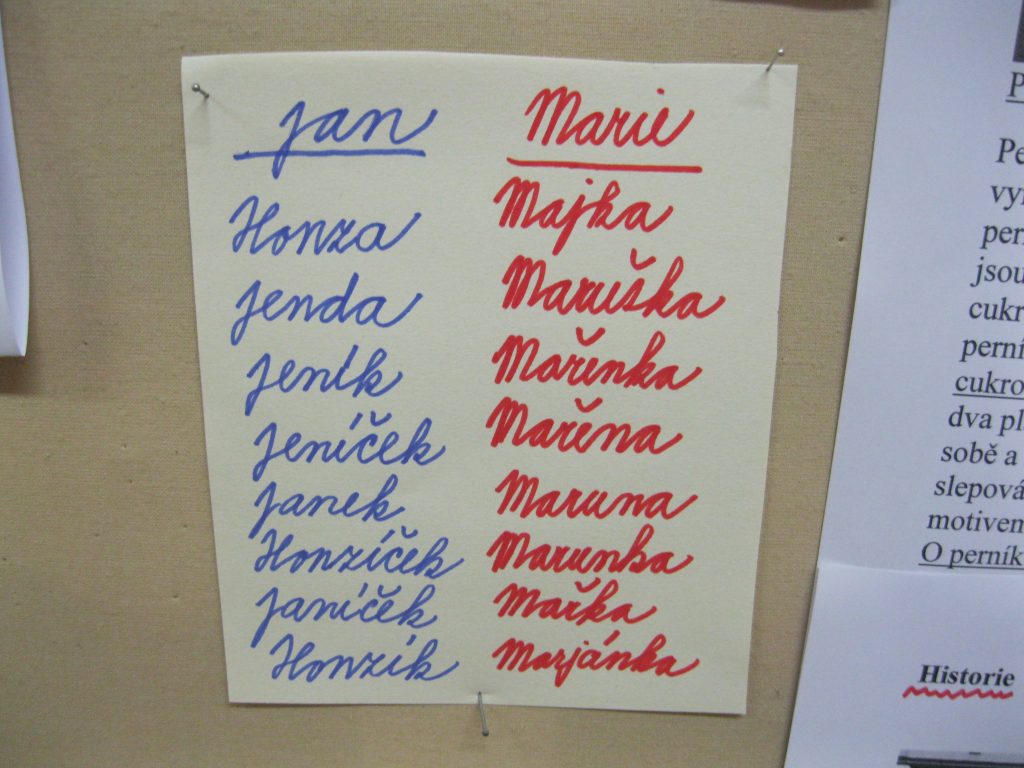 Jan
Honza
Jenda
Jeník
Jeníček
Janek
Honzíček
Janíček
Honzík
Marie
Majka
Maruška
Mařenka
Mařena
Maruna
Marunka
Mařka
Marjánka
P
Pe
vyr
per
jsou
cukr
perní
cukro
dva pl
sobě a
slepová
motivem
O perník
Historie